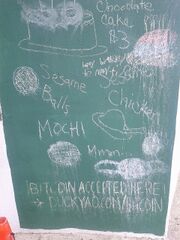 Chocolate
Cake
$3
Sesame
Balls
Chicken
MOCHI
Mmm...
BITCOIN ACCEPTED HERE!
→ DUCKYAO.COM/BITCOIN